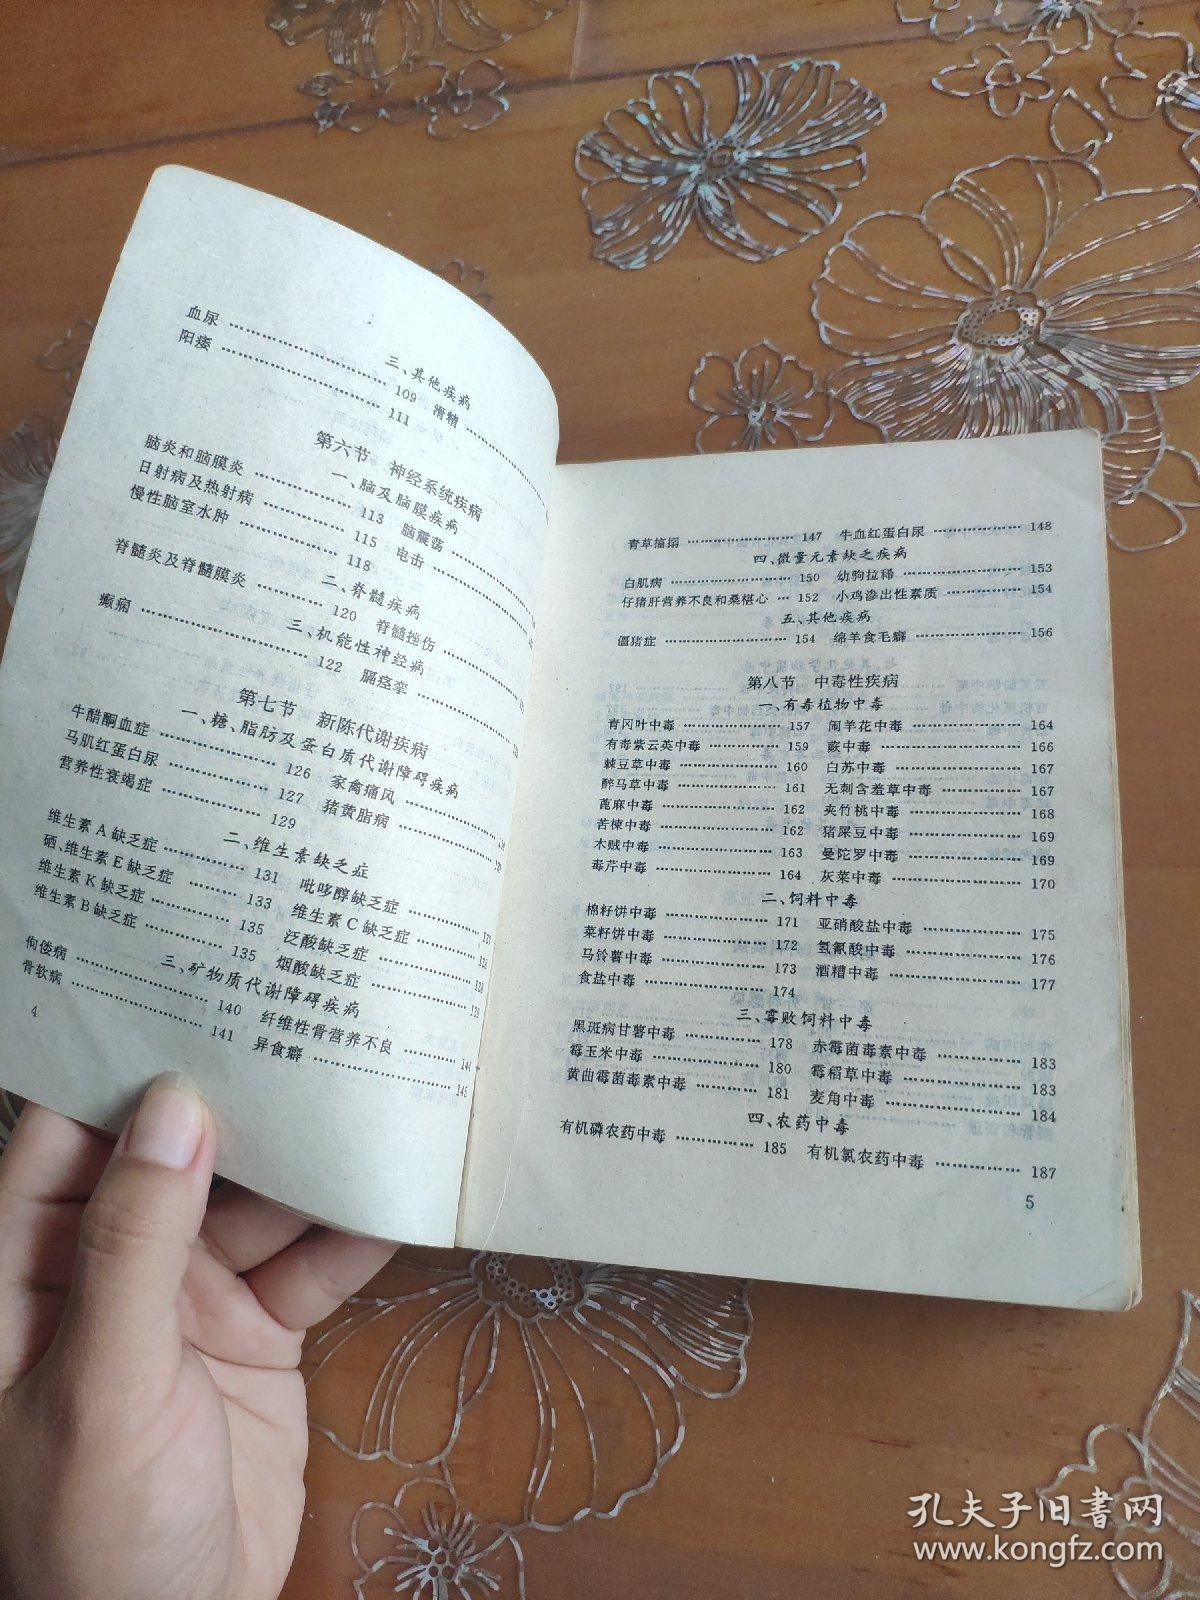 三、其他疾病
血尿 109 滑精
阳痿 111
第六节 神经系统疾病
一、脑及脑膜疾病
脑炎和脑膜炎 113 脑震荡
日射病及热射病 115 电击
慢性脑室水肿 118
二、脊髓疾病
脊髓炎及脊髓膜炎 120 脊髓挫伤
三、机能性神经病
癫痫 122 膈痉挛
第七节 新陈代谢疾病
一、糖、脂肪及蛋白质代谢障碍疾病
牛醋酮血症 126 家禽痛风
马肌红蛋白尿 127 猪黄脂病
营养性衰竭症 129
二、维生素缺乏症
维生素A缺乏症 131 吡哆醇缺乏症
硒、维生素E缺乏症 133 维生素C缺乏症
维生素K缺乏症 135 泛酸缺乏症
维生素B缺乏症 135 烟酸缺乏症
三、矿物质代谢障碍疾病
佝偻病 140 纤维性骨营养不良
骨软病 141 异食癖
4
青草搐搦 147 牛血红蛋白尿 148
四、微量元素缺乏疾病
白肌病 150 幼驹拉稀 153
仔猪肝营养不良和桑椹心 152 小鸡渗出性素质 154
五、其他疾病
僵猪症 154 绵羊食毛癖 156
第八节 中毒性疾病
一、有毒植物中毒
青冈叶中毒 157 闹羊花中毒 164
有毒紫云英中毒 159 蕨中毒 166
棘豆草中毒 160 白苏中毒 167
醉马草中毒 161 无刺含羞草中毒 167
蓖麻中毒 162 夹竹桃中毒 168
苦楝中毒 162 猪屎豆中毒 169
木贼中毒 163 曼陀罗中毒 169
毒芹中毒 164 灰菜中毒 170
二、饲料中毒
棉籽饼中毒 171 亚硝酸盐中毒 175
菜籽饼中毒 172 氢氰酸中毒 176
马铃薯中毒 173 酒糟中毒 177
食盐中毒 174
三、霉败饲料中毒
黑斑病甘薯中毒 178 赤霉菌毒素中毒 183
霉玉米中毒 180 霉稻草中毒 183
黄曲霉菌毒素中毒 181 麦角中毒 184
四、农药中毒
有机磷农药中毒 185 有机氯农药中毒 187
5
孔夫子旧书网
www.kongfz.com